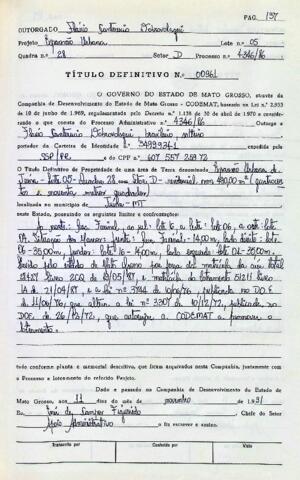 PAG. 137
OUTORGADO
Projeto Expansão Urbana Lote n.o 05
Quadra n.o 28 Setor D Processo n.o 4346/86
TÍTULO DEFINITIVO N.o 00961
O GOVERNO DO ESTADO DE MATO GROSSO, através da
Companhia de Desenvolvimento do Estado de Mato Grosso - CODEMAT, baseado na Lei n.o 2.933
de 10 de junho de 1969, regulamentado pelo Decreto n.o 1.138 de 30 de abril de 1970 e considerando
o que consta do Processo Administrativo n.o 4346/86 Outorga a
brasileiro, solteiro
portador da Carteira de Identidade n.o expedida pela
SSP/PR e do CPF n.o 607 557 259 72
O Título Definitivo de Propriedade de uma área de Terra denominada Expansão Urbana de
Juína - lote 05 - Quadra 28 setor D - com 490,00 m² quatrocentos
e noventa metros quadrados
Município de Juína - MT
neste Estado, possuindo os seguintes limites e confrontações:
Ao norte: ao sul: lote 16, a leste: lote 06, a oeste: lote
04. frente: 14,00m, lado direito: lote
06 - 35,00m, fundos: lote 16 - 14,00m, lado esquerdo: lote 04 - 35,00m.
pelo Estado de Mato Grosso por força da matrícula
matrícula do loteamento
de 21/04/87 e a lei n.o publicada no D.O.E
que altera a lei n.o 3307 de 18/12/72, publicada no
DOE de 26/12/72, que autoriza a CODEMAT a promover o
loteamento.
tudo conforme planta e memorial descritivo, que foram arquivados nesta Companhia, juntamente com
o Processo e Loteamento do referido Projeto.
Dado e passado na Companhia de Desenvolvimento do Estado de
Mato Grosso, aos 11 dias do mês de novembro de 1991
Eu José de Campos Figueiredo Chefe do Setor
Apoio Administrativo o fiz escrever e assino.
Transcrito por Conferido por Visto